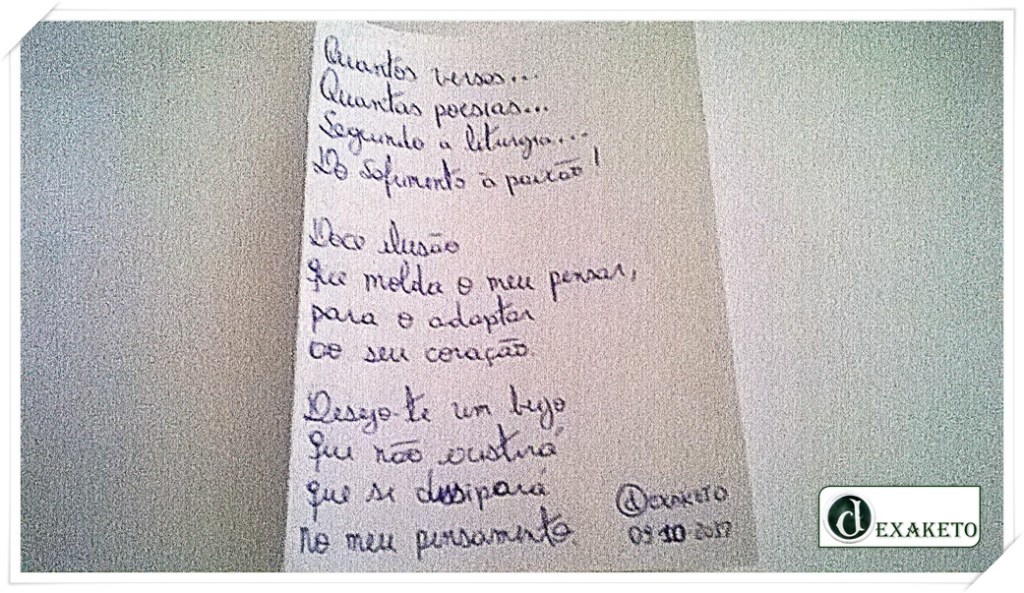 Quantos versos...
Quantas poesias...
Segundo a liturgia...
Do Sofrimento à paixão!
Doce ilusão
Que molda o meu pensar,
para o adaptar
ao seu coração.
Desejo-te um beijo
Que não existirá
que se dissipará
no meu pensamento.
dexaketo
09-10-2017
dEXAKETO